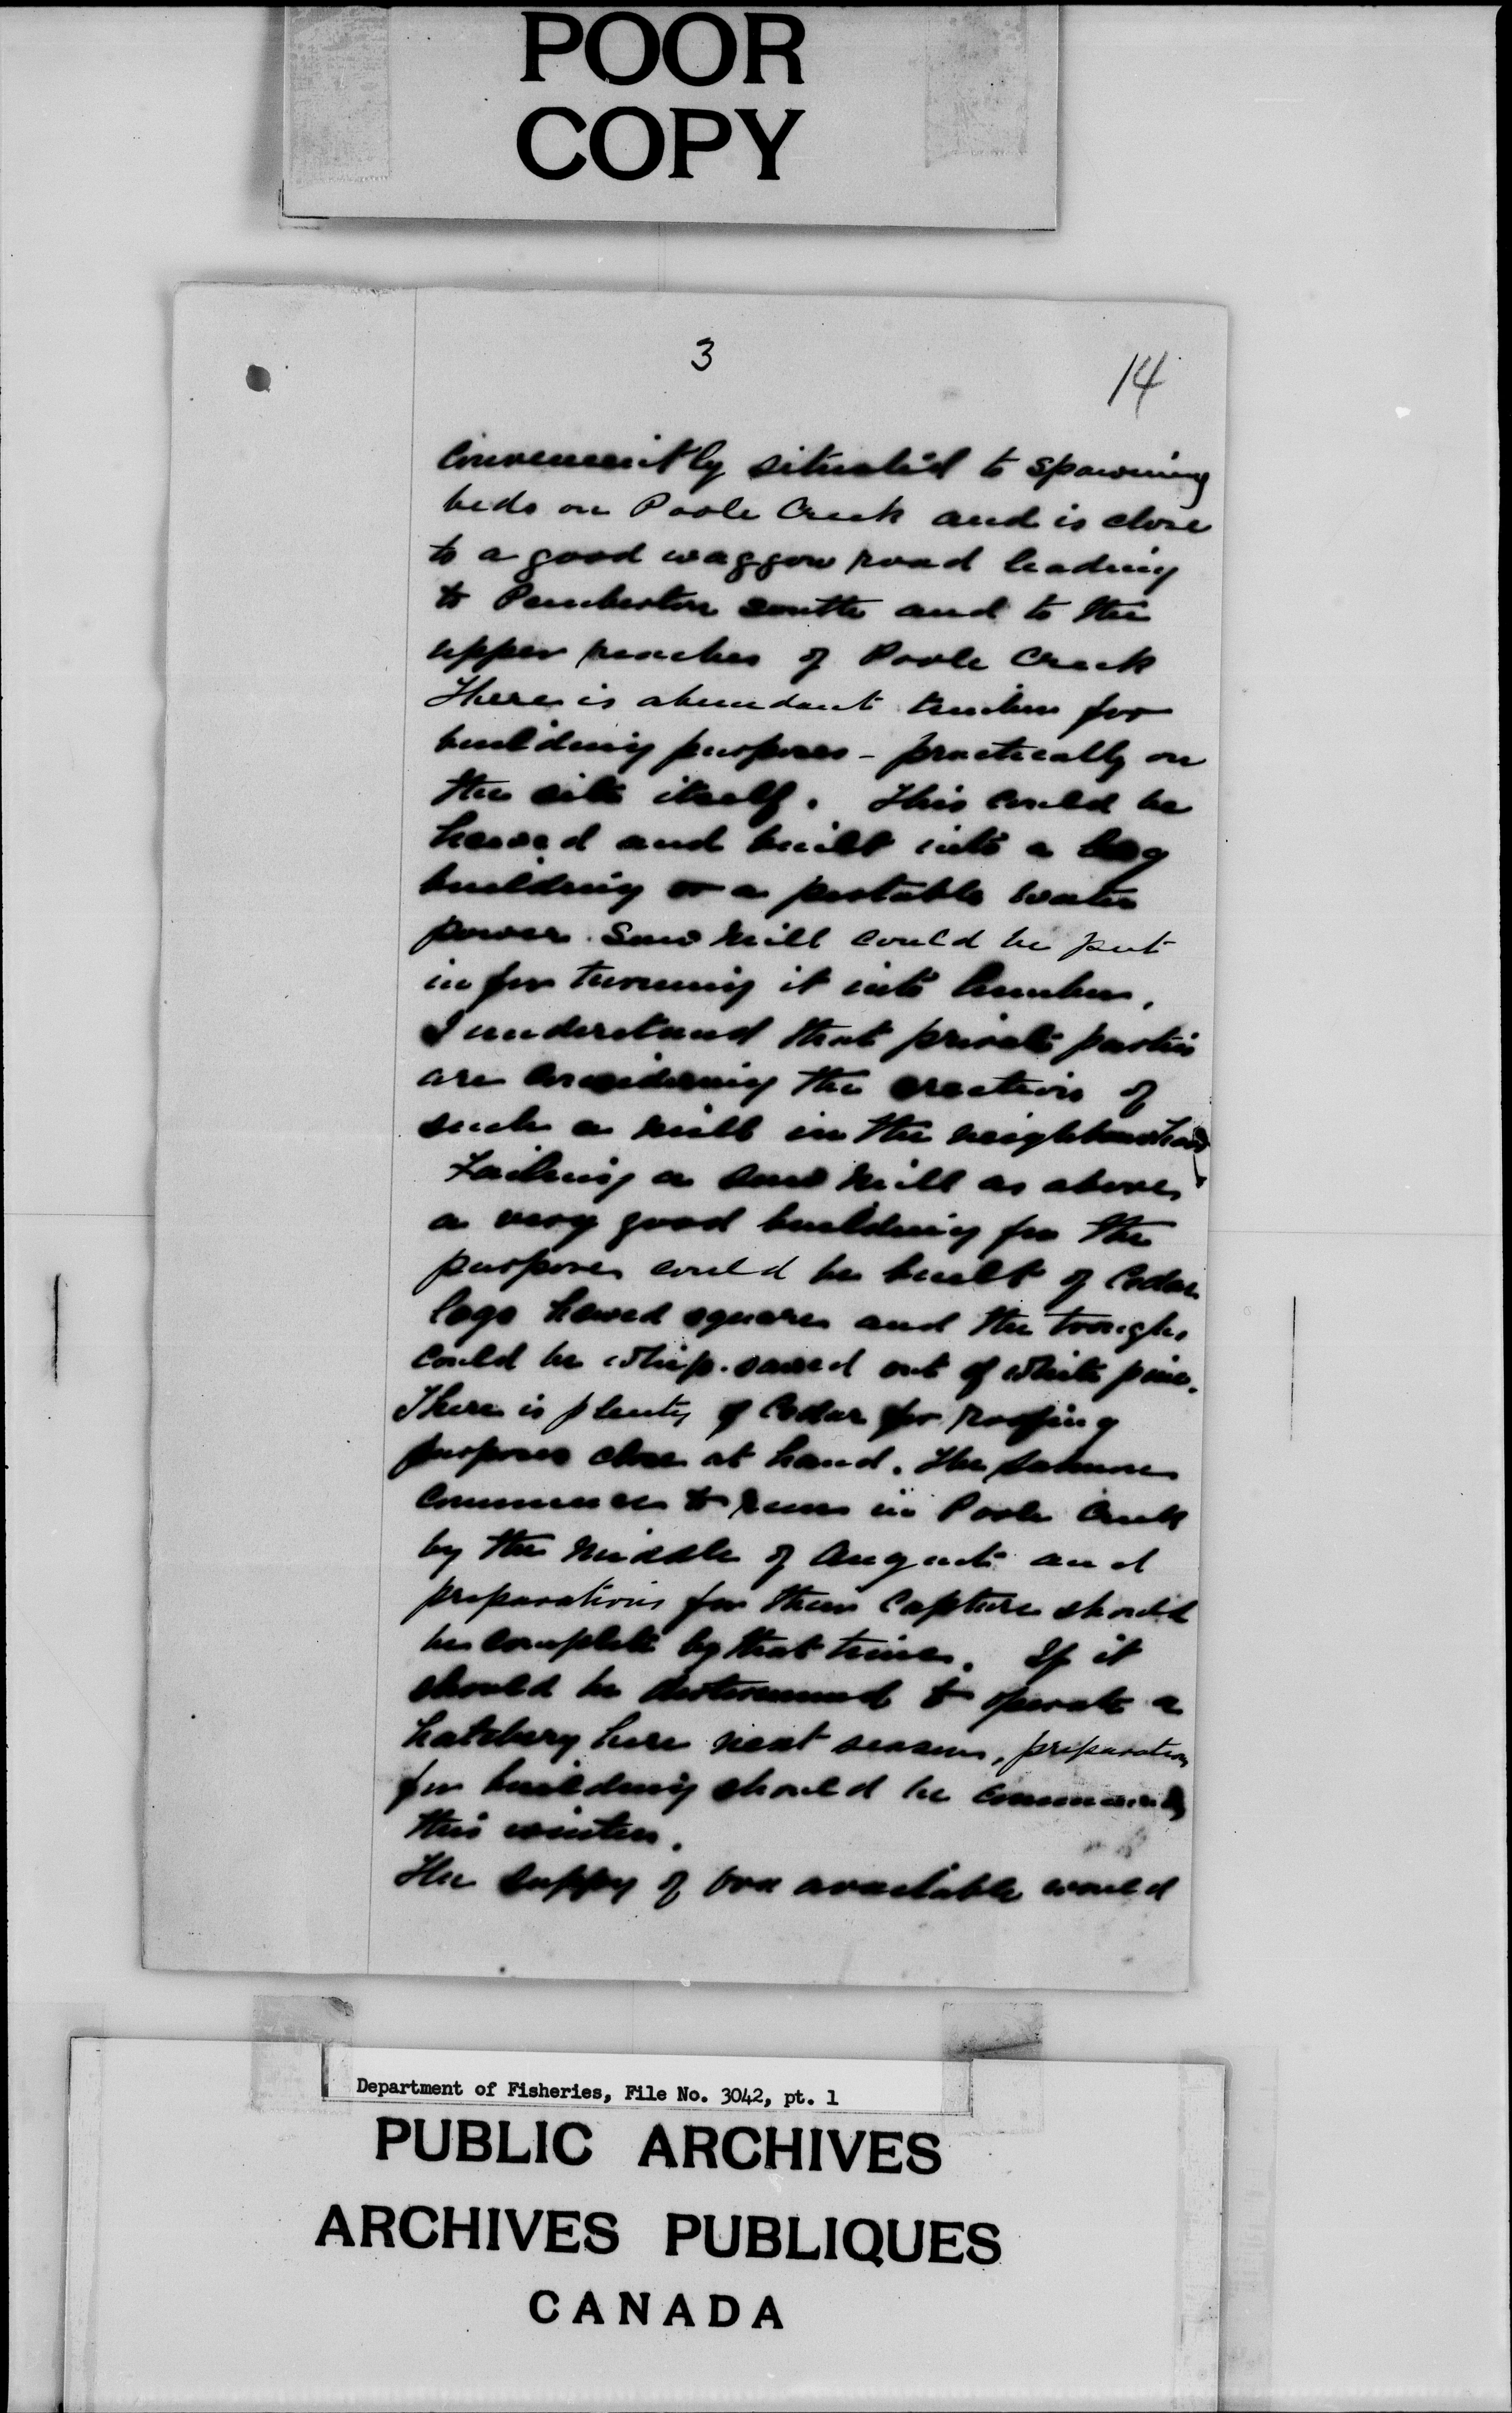 POOR
COPY
3
14
conveniently situated to spawning
beds on Poole Creek and is close
to a good waggon road leading
to Pemberton south and to the
upper reaches of Poole Creek
There is abundant timber for
building purposes - practically on
the site itself. This could be
hewed and built into a log
building or a portable water
power saw mill could be put
in for turning it into lumber.
I understand that private parties
are considering the erection of
such a mill in the neighbourhood
Failing a saw mill as above,
a very good building for the
purpose could be built of Cedar
logs hewed square and the troughs
could be whip-sawed out of white pine.
There is plenty of Cedar for roofing
purposes close at hand. The salmon
commence to run in Poole Creek
by the middle of August and
preparations for their capture should
be complete by that time. If it
should be determined to operate a
hatchery here next season, preparations
for building should be commenced
this winter.
The suppy of ova available would
Department of Fisheries, File No. 3042, pt. 1
PUBLIC ARCHIVES
ARCHIVES PUBLIQUES
CANADA